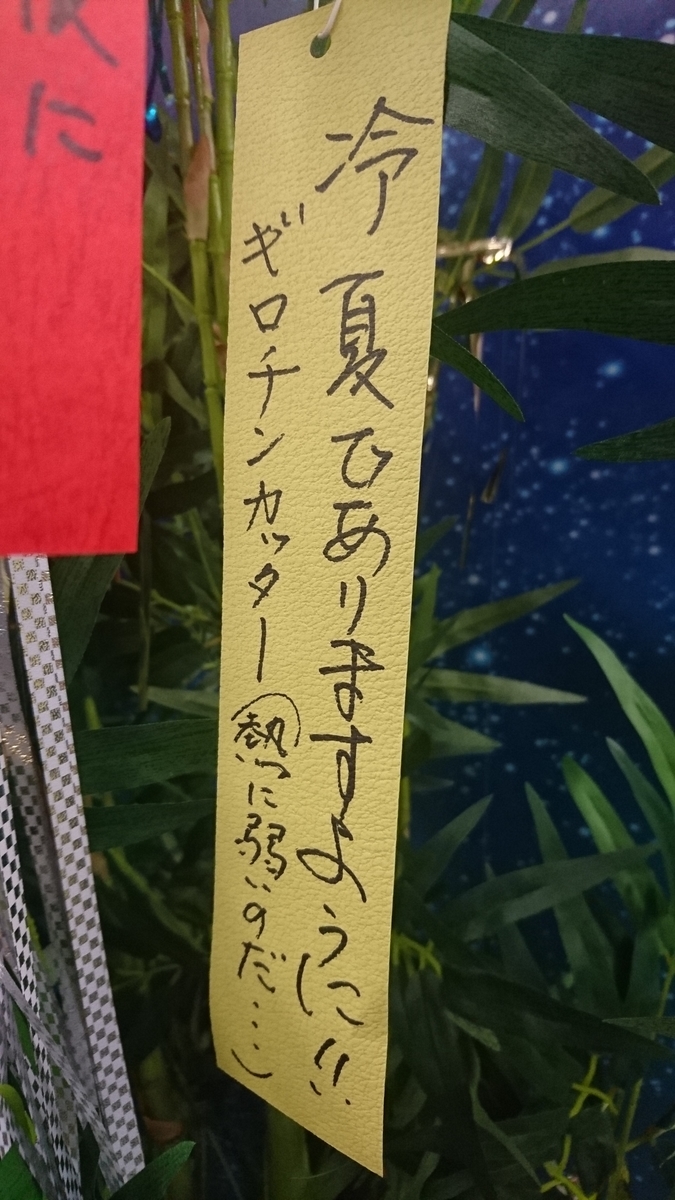 冷夏でありますように!!
ギロチンカッター(熱に弱いのだ…)
に